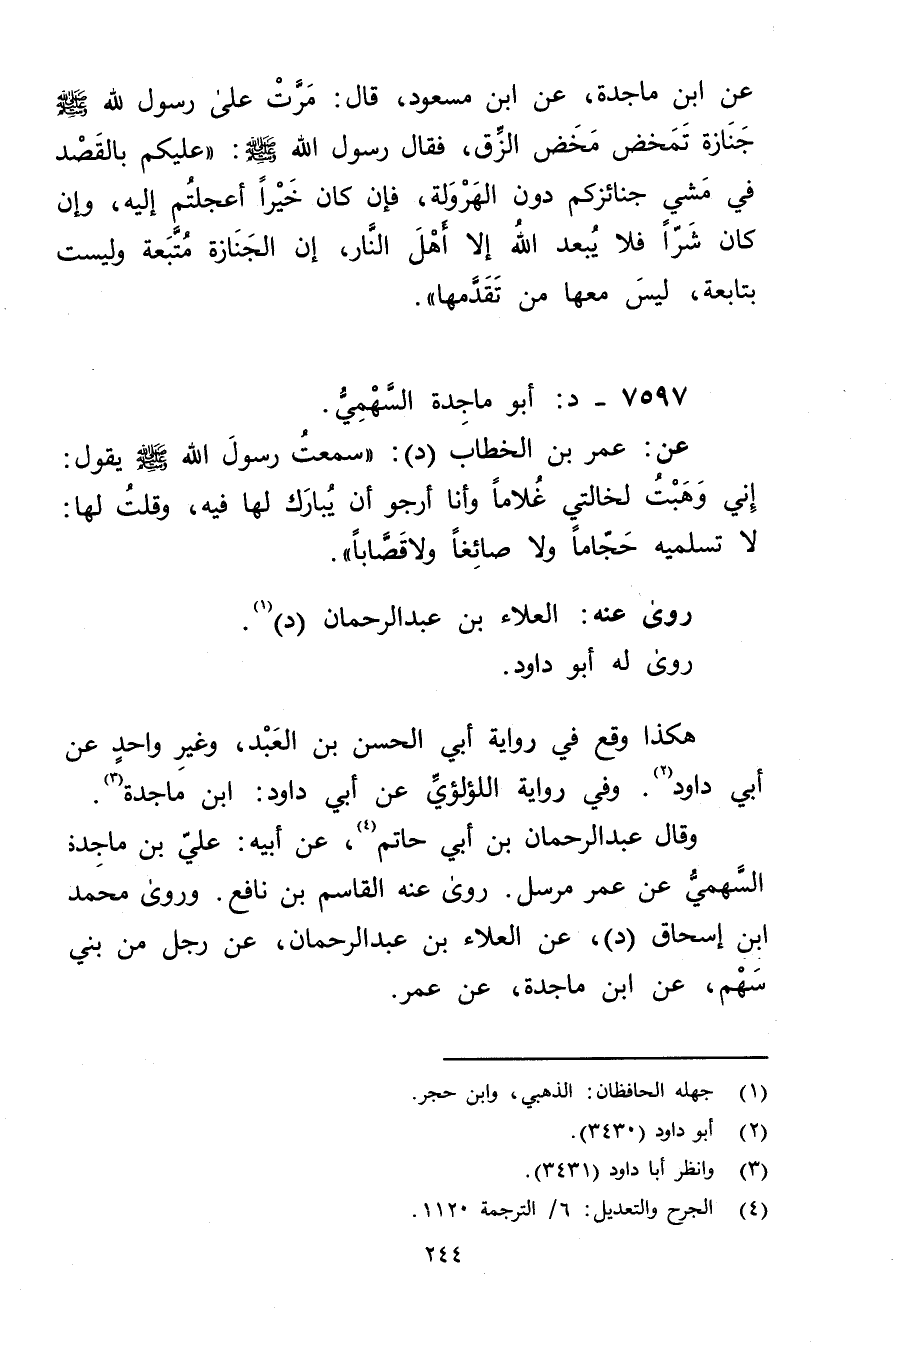 عن ابن ماجدة، عن ابن مسعود، قال: مَرَّتْ علىٰ رسول لله ﷺ
جَنَازة تَمَخض مَخَض الزِّق، فقال رسول الله ﷺ: «عليكم بالقَصْد
في مَشي جنائزكم دون الهَرْوَلة، فإن كان خَيْراً أعجلتُم إليه، وإن
كان شَرّاً فلا يُبعد اللهُ إلا أَهْلَ النَّار، إن الجَنَازة مُتَّبَعة وليست
بتابعة، ليسَ معها من تَقَدَّمها».
٧٥٩٧ - د: أبو ماجِدة السَّهْمِيُّ.
عن: عمر بن الخطاب (د): «سمعتُ رسولَ الله ﷺ يقول:
إِني وَهَبْتُ لخالتي غُلاماً وأنا أرجو أن يُبارَك لها فيه، وقلتُ لها:
لا تسلميه حَجّاماً ولا صائِغاً ولاقَصَّاباً».
روىٰ عنه: العلاء بن عبدالرحمان (د)(١).
روىٰ له أبو داود.
هكذا وقع في رواية أبي الحسن بن العَبْد، وغيرِ واحدٍ عن
أبي داود(٢). وفي رواية اللؤلؤيِّ عن أبي داود: ابن مَاجدة(٣).
وقال عبدالرحمان بن أبي حاتم(٤)، عن أبيه: عليّ بن ماجِدة
السَّهميُّ عن عمر مرسل. روىٰ عنه القاسم بن نافع. وروىٰ محمد
ابن إسحاق (د)، عن العلاء بن عبدالرحمان، عن رجل من بني
سَهْم، عن ابن ماجدة، عن عمر.
(١) جهله الحافظان: الذهبي، وابن حجر.
(٢) أبو داود (٣٤٣٠).
(٣) وانظر أبا داود (٣٤٣١).
(٤) الجرح والتعديل: ٦/ الترجمة ١١٢٠.
٢٤٤